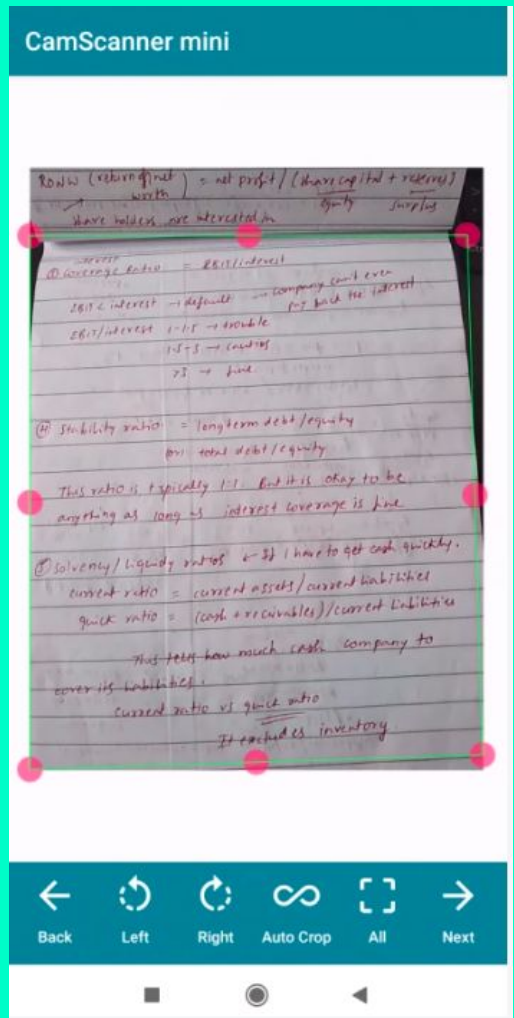 CamScanner mini
RONW (return of net worth) = net profit / (share capital + reserves)
equity surplus
share holders are interested in
interest
③ coverage ratio = EBIT/interest
EBIT < interest → default → company can't even
pay back the interest
EBIT/interest 1-1.5 → trouble
1.5-3 → cautious
>3 → fine
④ Stability ratio = longterm debt/equity
(or) total debt/equity
This ratio is typically 1:1. But it is okay to be
anything as long as interest coverage is fine
⑤ Solvency/Liquidy ratios ← If I have to get cash quickly.
current ratio = current assets/current liabilities
quick ratio = (cash + receivables)/current Liabilities
This tells how much cash company to
cover its liabilities.
current ratio vs quick ratio
It excludes inventory
Back Left Right Auto Crop All Next